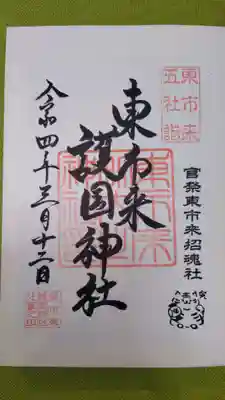 東市来
五社詣
官祭東市来招魂社
東市来
護国神社
令和四年三月十三日